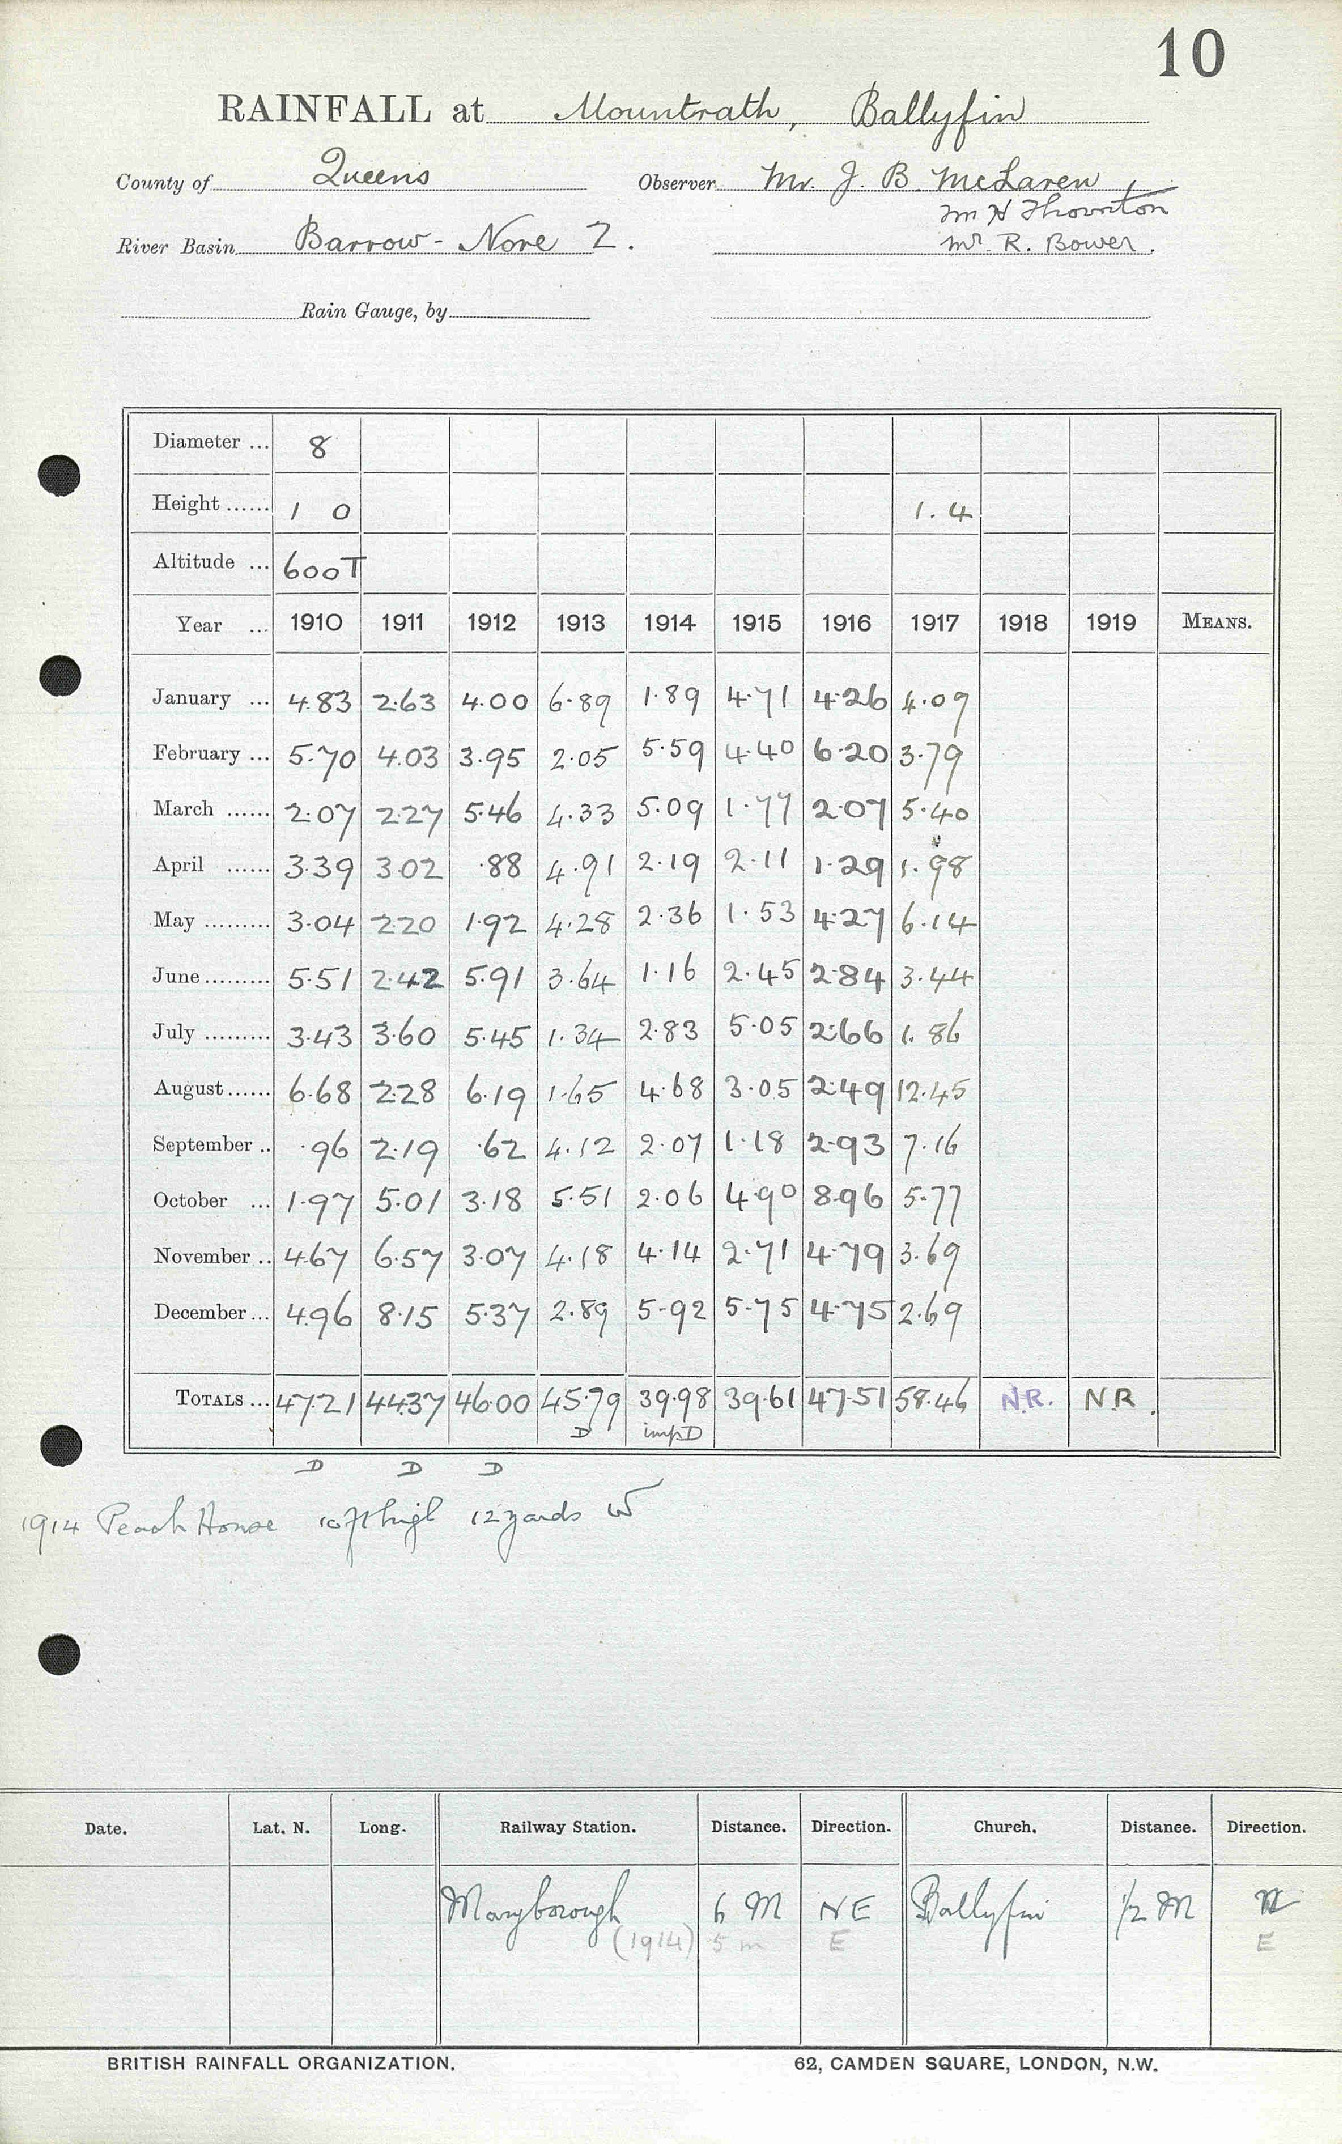 10
RAINFALL at Mountrath, Ballyfin
County of Queens Observer Mr. J. B. McLaren
Mr H Thornton
River Basin Barrow - Nore 2. Mr. R. Bower.
Rain Gauge, by
Diameter ... 8
Height ...... 1 0 1.4
Altitude ... 600T
Year ... 1910 1911 1912 1913 1914 1915 1916 1917 1918 1919 MEANS.
January ... 4.83 2.63 4.00 6.89 1.89 4.71 4.26 4.09
February ... 5.70 4.03 3.95 2.05 5.59 4.40 6.20 3.79
March ...... 2.07 2.27 5.46 4.33 5.09 1.77 2.07 5.40
April ...... 3.39 3.02 .88 4.91 2.19 2.11 1.29 1.98
May ......... 3.04 2.20 1.92 4.28 2.36 1.53 4.27 6.14
June ......... 5.51 2.42 5.91 3.64 1.16 2.45 2.84 3.44
July ......... 3.43 3.60 5.45 1.34 2.83 5.05 2.66 1.86
August ...... 6.68 2.28 6.19 1.65 4.68 3.05 2.49 12.45
September .. .96 2.19 .62 4.12 2.07 1.18 2.93 7.16
October ... 1.97 5.01 3.18 5.51 2.06 4.90 8.96 5.77
November .. 4.67 6.57 3.07 4.18 4.14 2.71 4.79 3.69
December ... 4.96 8.15 5.37 2.89 5.92 5.75 4.75 2.69
TOTALS ... 47.21 44.37 46.00 45.79 39.98 39.61 47.51 58.46 N.R. NR.
D imp.D
D D D
1914 Peach House 10ft high 12 yards W
Date. Lat. N. Long. Railway Station. Distance. Direction. Church. Distance. Direction.
Maryborough 6 M NE Ballyfin 1/2 M N
(1914) 5 m E E
BRITISH RAINFALL ORGANIZATION. 62, CAMDEN SQUARE, LONDON, N.W.